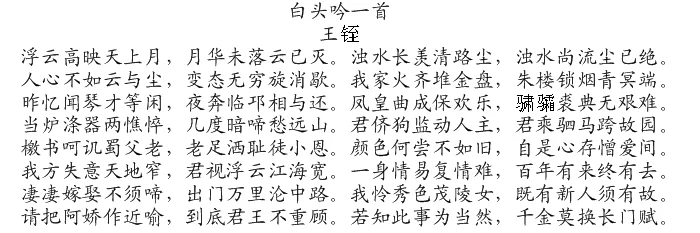 白头吟一首
王铚
浮云高映天上月，月华未落云已灭。浊水长美清路尘，浊水尚流尘已绝。
人心不如云与尘，变态无穷旋消歇。我家火齐堆金盘，朱楼锁烟青冥端。
昨忆闻琴才等闲，夜奔临邛相与还。凤皇曲成保欢乐，骕骦裘典无艰难。
当炉涤器两憔悴，几度暗啼愁远山。君侪狗监动人主，君乘驷马跨故园。
檄书呵讥蜀父老，老足洒耻徒小恩。颜色何尝不如旧，自是心存憎爱间。
我方失意天地窄，君视浮云江海宽。一身情易复情难，百年有来终有去。
凄凄嫁娶不须啼，出门万里沦中路。我怜秀色茂陵女，既有新人须有故。
请把阿娇作近喻，到底君王不重顾。若知此事为当然，千金莫换长门赋。